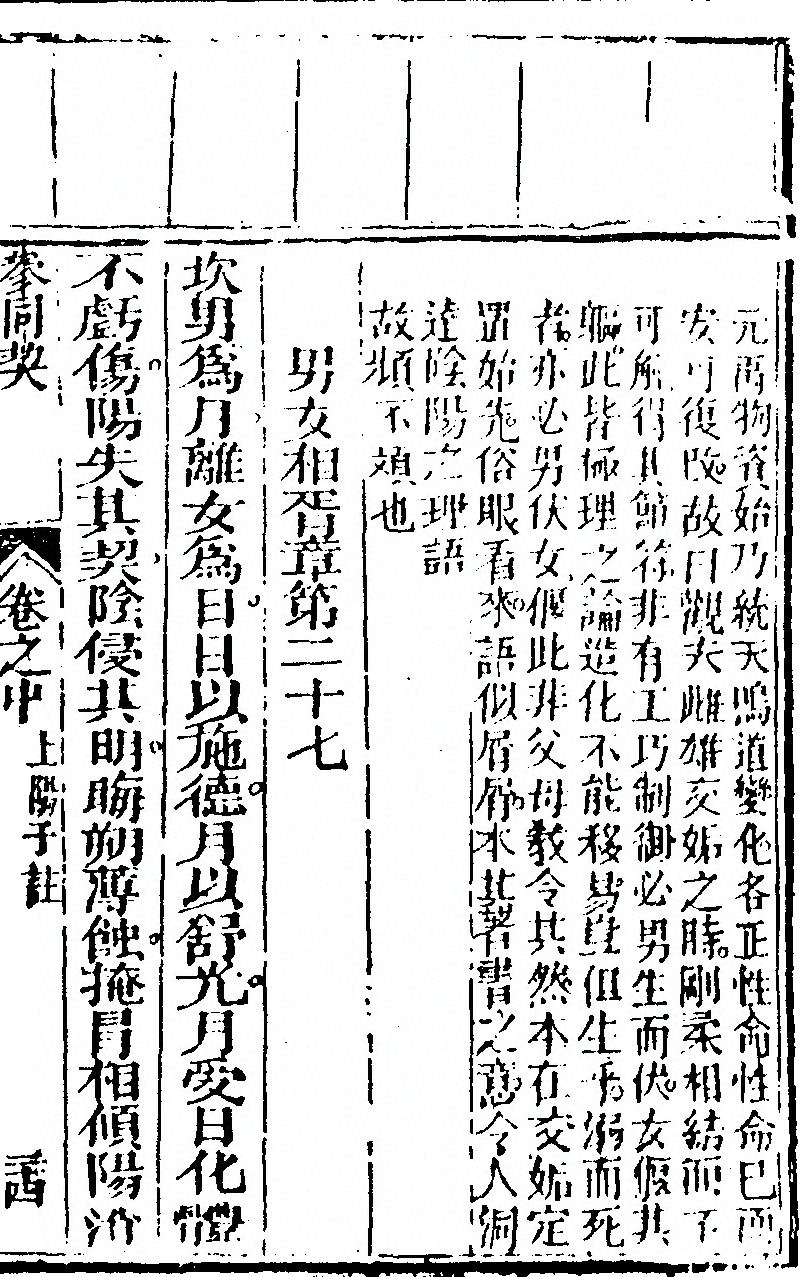 元萬物資始乃統天嗚道變化各正性命性命已而
安可復改故曰觀夫雌雄交姤之時剛柔相結而不
可解得其節符非有工巧制御必男生而伏女偃其
軀此皆極理之論造化不能移易且生乎溺而死
者亦必男伏女偃此非父母教令其然本在交姤定
置始先俗眼看來語似屑屑本其著書之意令人洞
達陰陽之理語
故煩不煩也
男女相胥章第二十七
坎男爲月離女爲日日以施德月以舒光月受日化體
不虧傷陽失其契陰侵其明晦朔薄蝕掩冒相傾陽消
參同契
卷之中
上陽子註